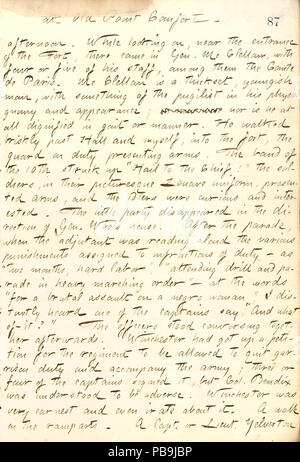 at Old Point Comfort — 87
afternoon. While looking on, near the entrance
of the Fort, there came in Gen. McClellan, with
four or five of his staff, among them the Comte
de Paris. McClellan is a thickset, youngish
man, with something of the pugilist in his physiog-
nomy and appearance; nor is he at
all dignified in gait or manner. He walked
briskly past Hall and myself, into the fort, the
guard on duty presenting arms. The band of
the 10th struck up "Hail to the Chief;" the sol-
diers, in their picturesque Zouave uniform, presen-
ted arms, and the 10ers were curious and inter-
ested. The little party disappeared in the di-
rection of Gen. Wool's house. After the parade,
when the adjutant was reading aloud the various
punishments assigned to infractions of duty — as
"two months, hard labor" "attending drill and pa-
rade in heavy marching order" — at the words
"for a brutal assault on a negro woman," I dis-
tinctly heard one of the captains say, "And what
of it?" The officers stood conversing toget-
her afterwards. Winchester had got up a peti-
tion for the regiment to be allowed to quit gar-
rison duty and accompany the army; three or
four of the captains signed it, but Col. Bendix
was understood to be adverse. Winchester was
very earnest and even irate about it. A walk
on the ramparts. A Capt. or Lieut. Yelverton
alamy
Image ID: PB9JBP
www.alamy.com